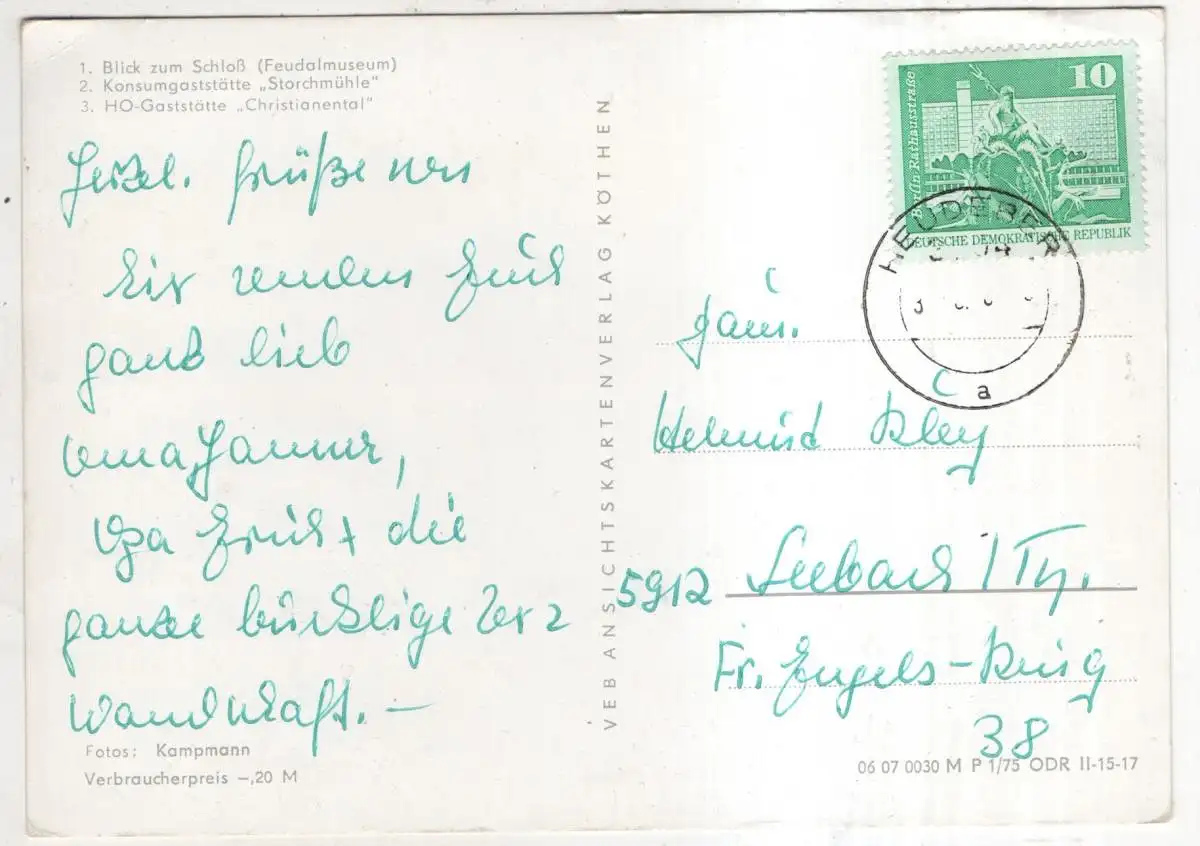 1. Blick zum Schloß (Feudalmuseum)
2. Konsumgaststätte „Storchmühle"
3. HO-Gaststätte „Christianental"
Herzl. Grüße von
hier senden Euch
ganz lieb
Oma Hanner,
Opa Erich + die
ganze bucklige Ver=
wandschaft. —
Fotos: Kampmann
Verbraucherpreis –,20 M
VEB ANSICHTSKARTENVERLAG KÖTHEN
10
Berlin-Rathausstraße
DEUTSCHE DEMOKRATISCHE REPUBLIK
HEUDEBER
a
Fam.
Helmut Kley
5912 Seebach / Th.
Fr. Engels-Ring
38
06 07 0030 M P 1/75 ODR II-15-17